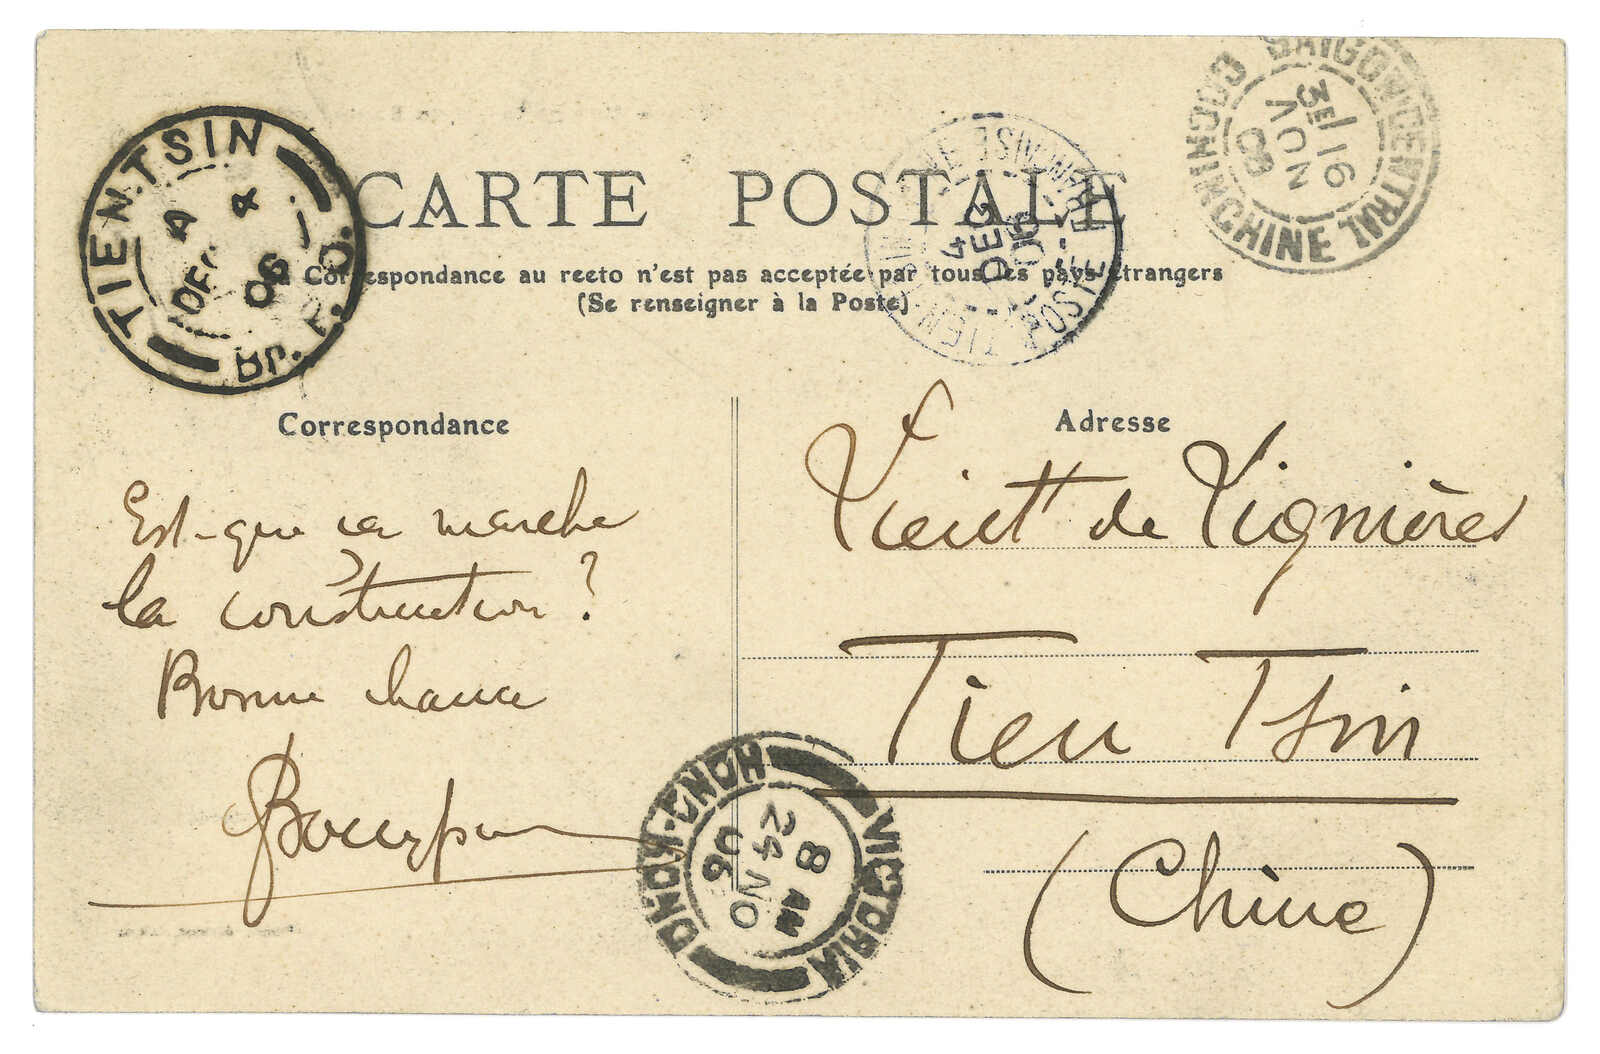 CARTE POSTALE
La Correspondance au recto n'est pas acceptée par tous les pays étrangers
(Se renseigner à la Poste)
Correspondance
Est-que ça marche
la construction ?
Bonne chance
Adresse
de Vignières
Tien Tsin
(Chine)
TIENTSIN
4 4
DEC 06
BR. P. O.
4
DEC
06
SAIGON CENTRAL
COCHINCHINE
3E/16
NOV
06
VICTORIA
HONG-KONG
8 AM
24 NO
06